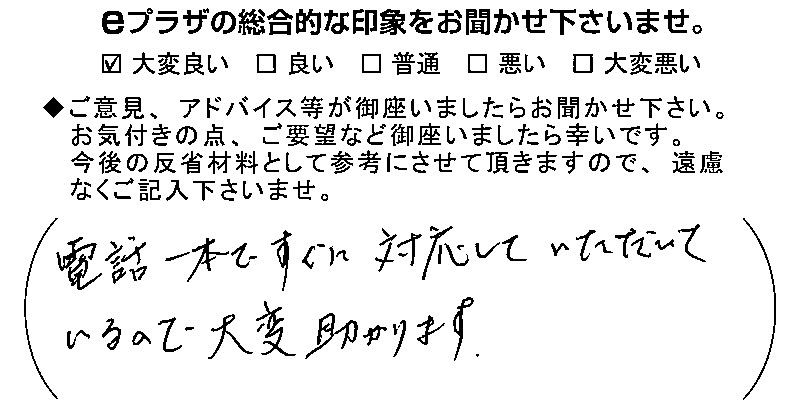 eプラザの総合的な印象をお聞かせ下さいませ。
☑ 大変良い □ 良い □ 普通 □ 悪い □ 大変悪い
◆ご意見、アドバイス等が御座いましたらお聞かせ下さい。
お気付きの点、ご要望など御座いましたら幸いです。
今後の反省材料として参考にさせて頂きますので、遠慮
なくご記入下さいませ。
電話一本ですぐに対応していただいて
いるので大変助かります.